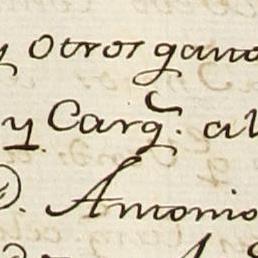 y otros gana
y Carg. al
. Antonio